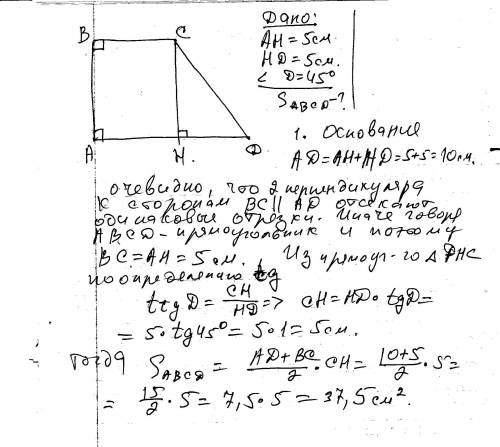 Дано:
AH = 5см
HD = 5см.
< D = 45°
S ABCD - ?
B C
A H. D
1. Основание
AD = AH + HD = 5+5 = 10см.
очевидно, что 2 перпендикуляра
к сторонам BC || AD отсекают
одинаковые отрезки. Иначе говоря
ABCD - прямоугольник и потому
BC = AH = 5см. Из прямоуг-го Δ DHC
по определению tg
tg D = CH/HD => CH = HD · tg D =
= 5 · tg 45° = 5 · 1 = 5см.
= тогда S ABCD = (AD + BC)/2 · CH = (10+5)/2 · 5 =
= 15/2 · 5 = 7,5 · 5 = 37,5 см².